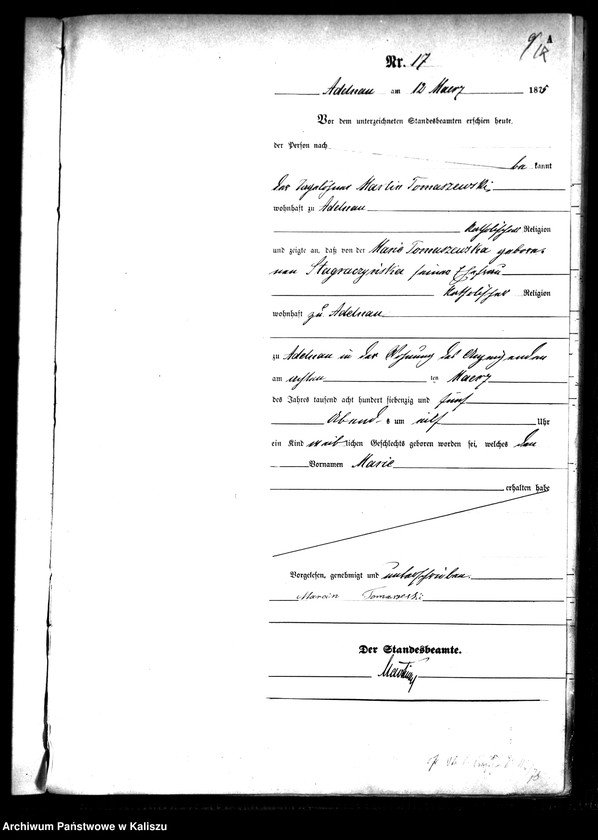 A
Nr. 17
Adelnau am 12 Maerz 1875
Vor dem unterzeichneten Standesbeamten erschien heute,
der Person nach
be kannt
der Tagelöhner Martin Tomaszewski
wohnhaft zu Adelnau
katholischer Religion
und zeigte an, daß von der Marie Tomaszewska gebore-
nen Stagraczyńska seiner Ehefrau
katholischer Religion
wohnhaft zu Adelnau
zu Adelnau in der Wohnung des Anzeigenden
am achten ten Maerz
des Jahres tausend acht hundert siebenzig und fünf
Abends um elf Uhr
ein Kind weiblichen Geschlechts geboren worden sei, welches den
Vornamen Marie
erhalten habe
Vorgelesen, genehmigt und unterschrieben
Marcin Tomaszeski
Der Standesbeamte.
Archiwum Państwowe w Kaliszu